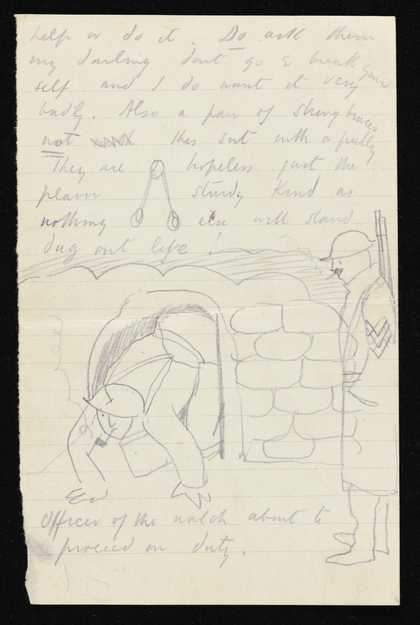 help or do it. Do ask them
my darling don't go & break your
self and I do want it very
badly. Also a pair of strong braces
not this sort with a pulley
They are hopeless just the
plain sturdy kind as
nothing else will stand
dug out life!
Officer of the watch about to
proceed on duty.